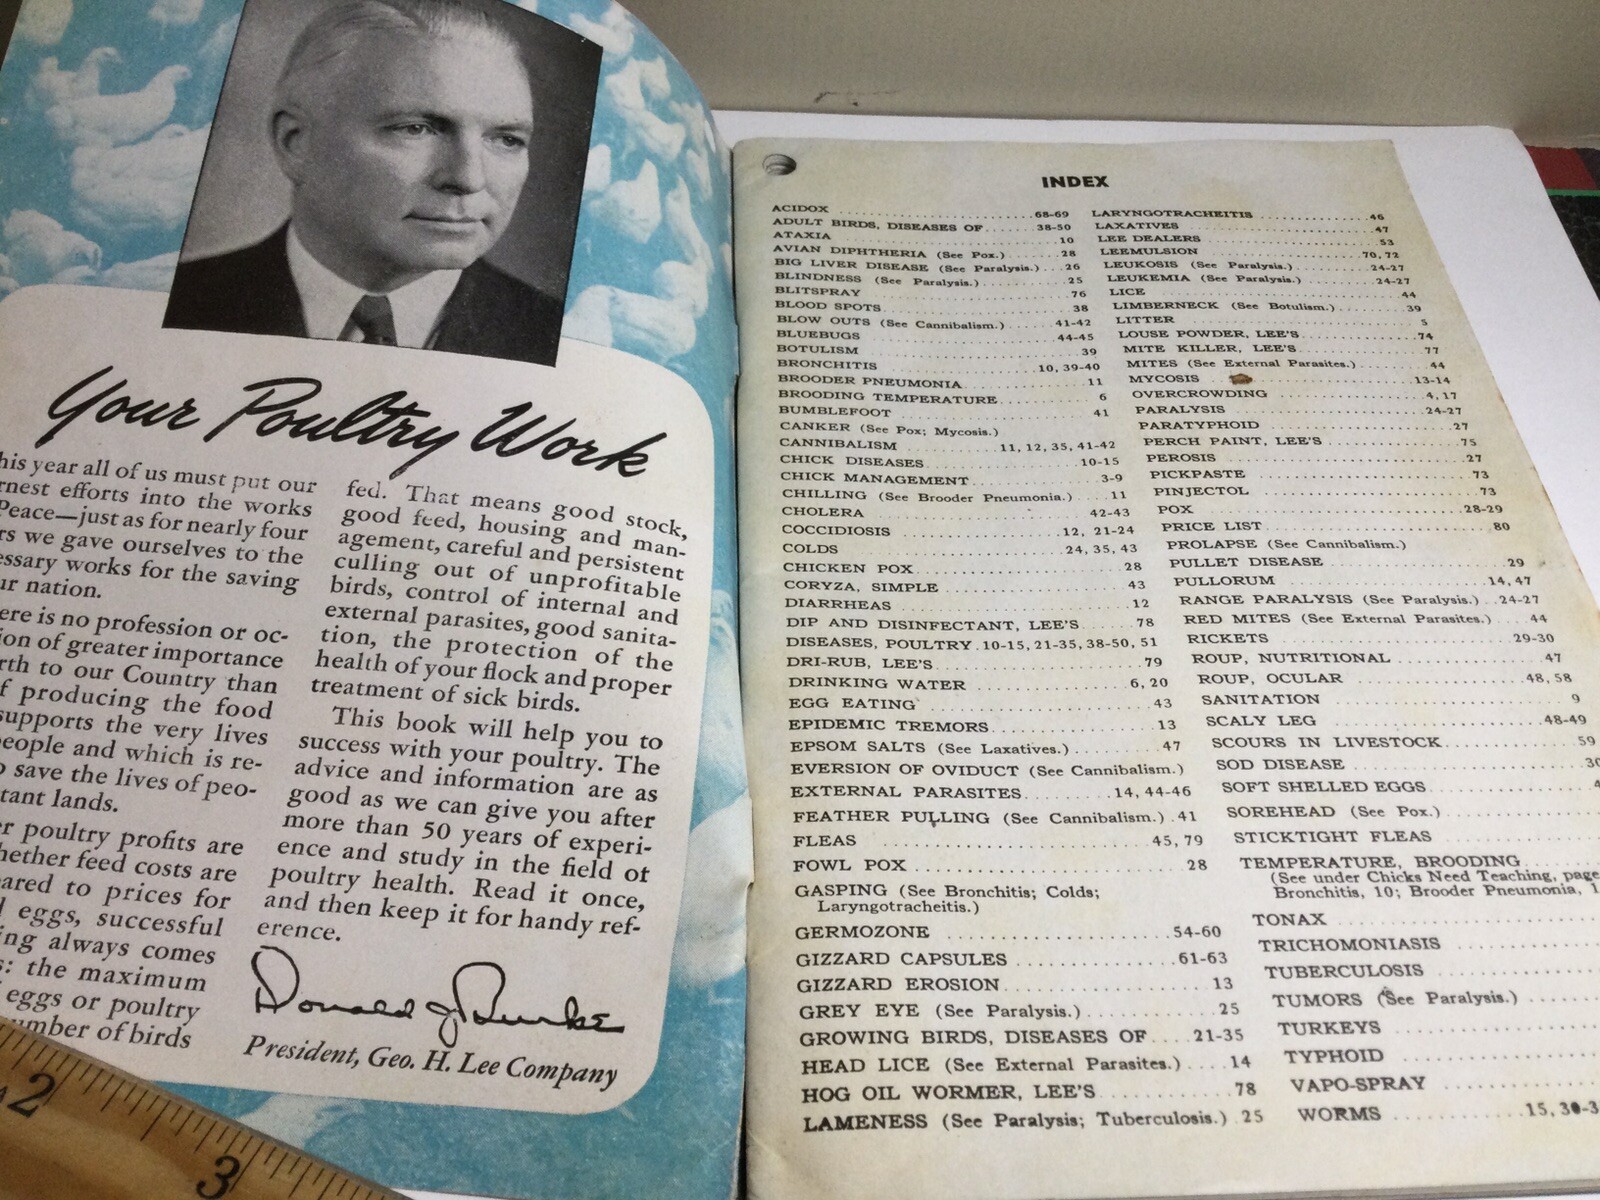 Your Poultry Work
his year all of us must put our
efforts into the works
Peace—just as for nearly four
we gave ourselves to the
works for the saving
nation.
is no profession or oc-
of greater importance
to our Country than
producing the food
supports the very lives
people and which is re-
save the lives of peo-
lands.
poultry profits are
feed costs are
to prices for
eggs, successful
always comes
the maximum
eggs or poultry
number of birds
fed. That means good stock,
good feed, housing and man-
agement, careful and persistent
culling out of unprofitable
birds, control of internal and
external parasites, good sanita-
tion, the protection of the
health of your flock and proper
treatment of sick birds.
This book will help you to
success with your poultry. The
advice and information are as
good as we can give you after
more than 50 years of experi-
ence and study in the field of
poultry health. Read it once,
and then keep it for handy ref-
erence.
Donald J. Burke
President, Geo. H. Lee Company
2
3
INDEX
ACIDOX 68-69
ADULT BIRDS, DISEASES OF 38-50
ATAXIA 10
AVIAN DIPHTHERIA (See Pox.) 28
BIG LIVER DISEASE (See Paralysis.) 26
BLINDNESS (See Paralysis.) 25
BLITSPRAY 76
BLOOD SPOTS 38
BLOW OUTS (See Cannibalism.) 41-42
BLUEBUGS 44-45
BOTULISM 39
BRONCHITIS 10, 39-40
BROODER PNEUMONIA 11
BROODING TEMPERATURE 6
BUMBLEFOOT 41
CANKER (See Pox; Mycosis.)
CANNIBALISM 11, 12, 35, 41-42
CHICK DISEASES 10-15
CHICK MANAGEMENT 3-9
CHILLING (See Brooder Pneumonia.) 11
CHOLERA 42-43
COCCIDIOSIS 12, 21-24
COLDS 24, 35, 43
CHICKEN POX 28
CORYZA, SIMPLE 43
DIARRHEAS 12
DIP AND DISINFECTANT, LEE'S 78
DISEASES, POULTRY 10-15, 21-35, 38-50, 51
DRI-RUB, LEE'S 79
DRINKING WATER 6, 20
EGG EATING 43
EPIDEMIC TREMORS 13
EPSOM SALTS (See Laxatives.) 47
EVERSION OF OVIDUCT (See Cannibalism.)
EXTERNAL PARASITES 14, 44-46
FEATHER PULLING (See Cannibalism.) 41
FLEAS 45, 79
FOWL POX 28
GASPING (See Bronchitis; Colds;
Laryngotracheitis.)
GERMOZONE 54-60
GIZZARD CAPSULES 61-63
GIZZARD EROSION 13
GREY EYE (See Paralysis.) 25
GROWING BIRDS, DISEASES OF 21-35
HEAD LICE (See External Parasites.) 14
HOG OIL WORMER, LEE'S 78
LAMENESS (See Paralysis; Tuberculosis.) 25
LARYNGOTRACHEITIS 46
LAXATIVES 47
LEE DEALERS 53
LEEMULSION 70, 72
LEUKOSIS (See Paralysis.) 24-27
LEUKEMIA (See Paralysis.) 24-27
LICE 44
LIMBERNECK (See Botulism.) 39
LITTER 5
LOUSE POWDER, LEE'S 74
MITE KILLER, LEE'S 77
MITES (See External Parasites.) 44
MYCOSIS 13-14
OVERCROWDING 4, 17
PARALYSIS 24-27
PARATYPHOID 27
PERCH PAINT, LEE'S 75
PEROSIS 27
PICKPASTE 73
PINJECTOL 73
POX 28-29
PRICE LIST 80
PROLAPSE (See Cannibalism.)
PULLET DISEASE 29
PULLORUM 14, 47
RANGE PARALYSIS (See Paralysis.) 24-27
RED MITES (See External Parasites.) 44
RICKETS 29-30
ROUP, NUTRITIONAL 47
ROUP, OCULAR 48, 58
SANITATION 9
SCALY LEG 48-49
SCOURS IN LIVESTOCK 59
SOD DISEASE 30
SOFT SHELLED EGGS
SOREHEAD (See Pox.)
STICKTIGHT FLEAS
TEMPERATURE, BROODING
(See under Chicks Need Teaching, page
Bronchitis, 10; Brooder Pneumonia, 1
TONAX
TRICHOMONIASIS
TUBERCULOSIS
TUMORS (See Paralysis.)
TURKEYS
TYPHOID
VAPO-SPRAY
WORMS 15, 30-3